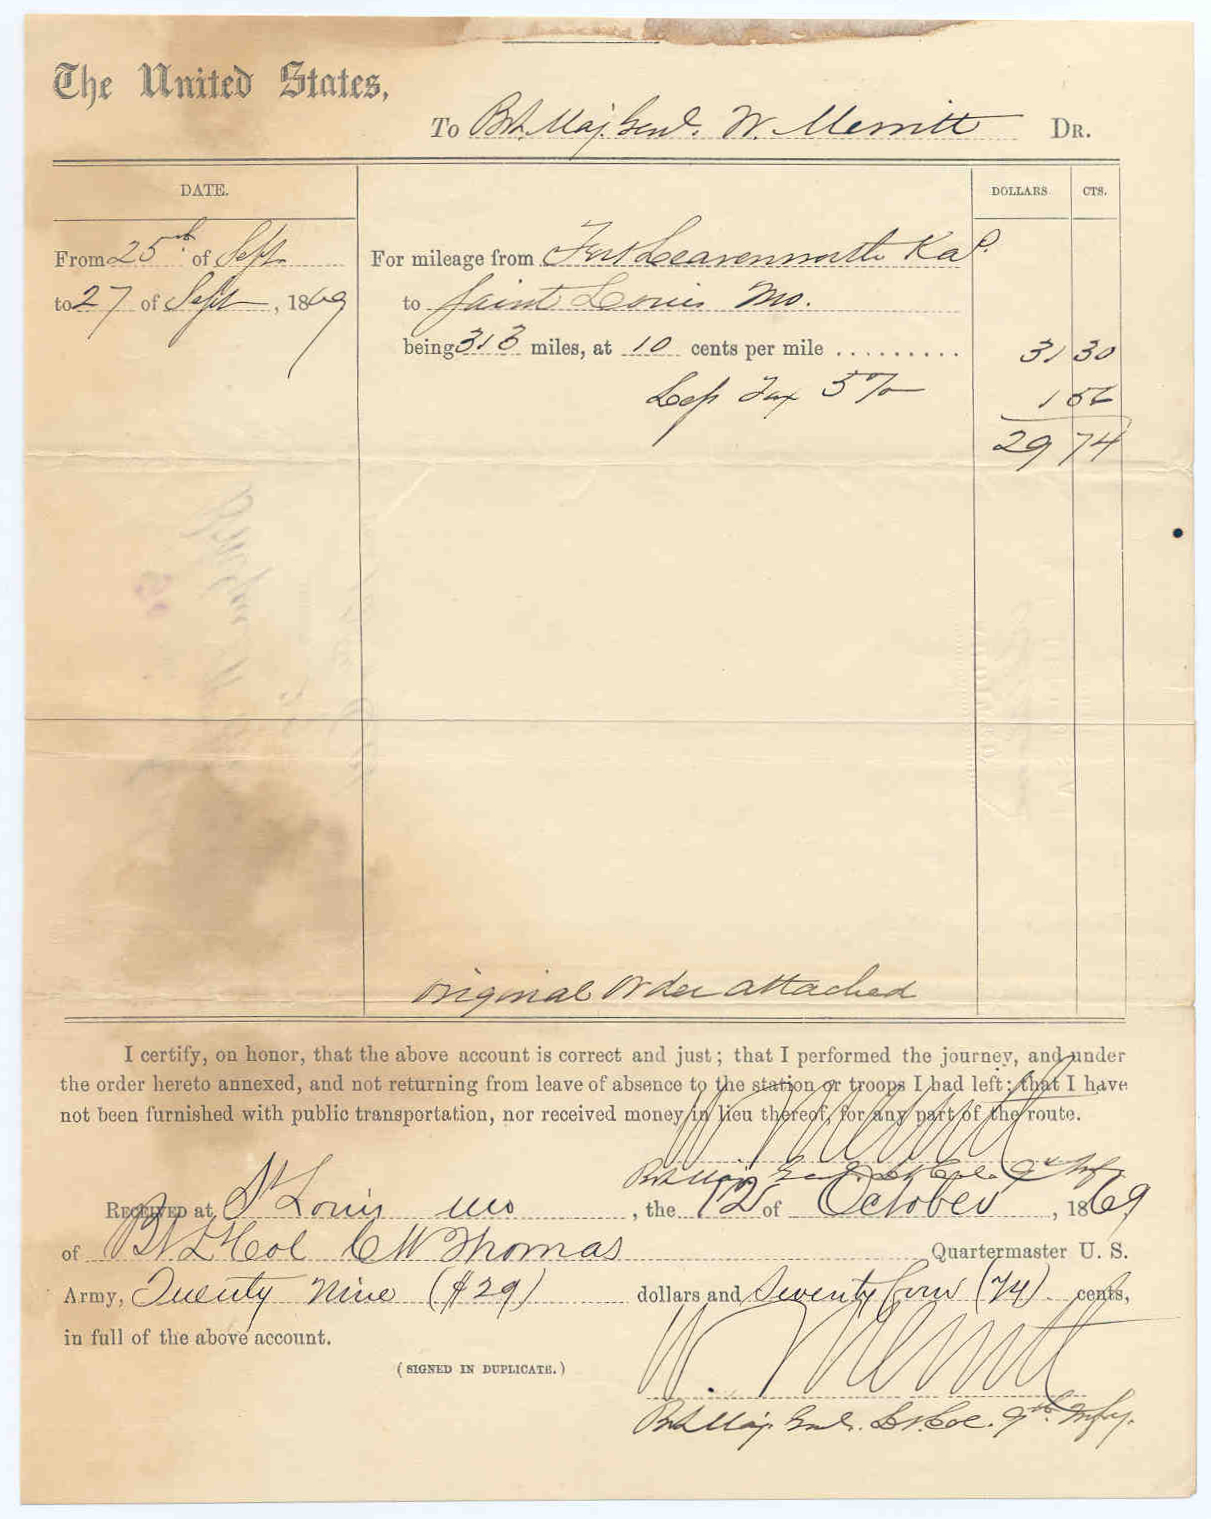 The United States,
To Bvt. Maj. Genl. W. Merritt DR.
DATE. DOLLARS. CTS.
From 25th of Sept.
For mileage from Fort Leavenworth Kas.
to 27 of Sept, 1869
to Saint Louis Mo.
being 313 miles, at 10 cents per mile ......... 31 30
Less Tax 5% 1 56
29 74
Original Order attached
I certify, on honor, that the above account is correct and just; that I performed the journey, and under
the order hereto annexed, and not returning from leave of absence to the station or troops I had left; that I have
not been furnished with public transportation, nor received money in lieu thereof, for any part of the route.
W. Merritt
Bvt Maj. Genl. Lt. Col. 9th
RECEIVED at St Louis Mo, the 12 of October, 1869
of Bt Lt Col C W Thomas Quartermaster U. S.
Army, Twenty Nine ($29) dollars and Seventy four (74) cents,
in full of the above account.
(SIGNED IN DUPLICATE.)
W. Merritt
Bvt Maj. Genl. Lt. Col. 9th